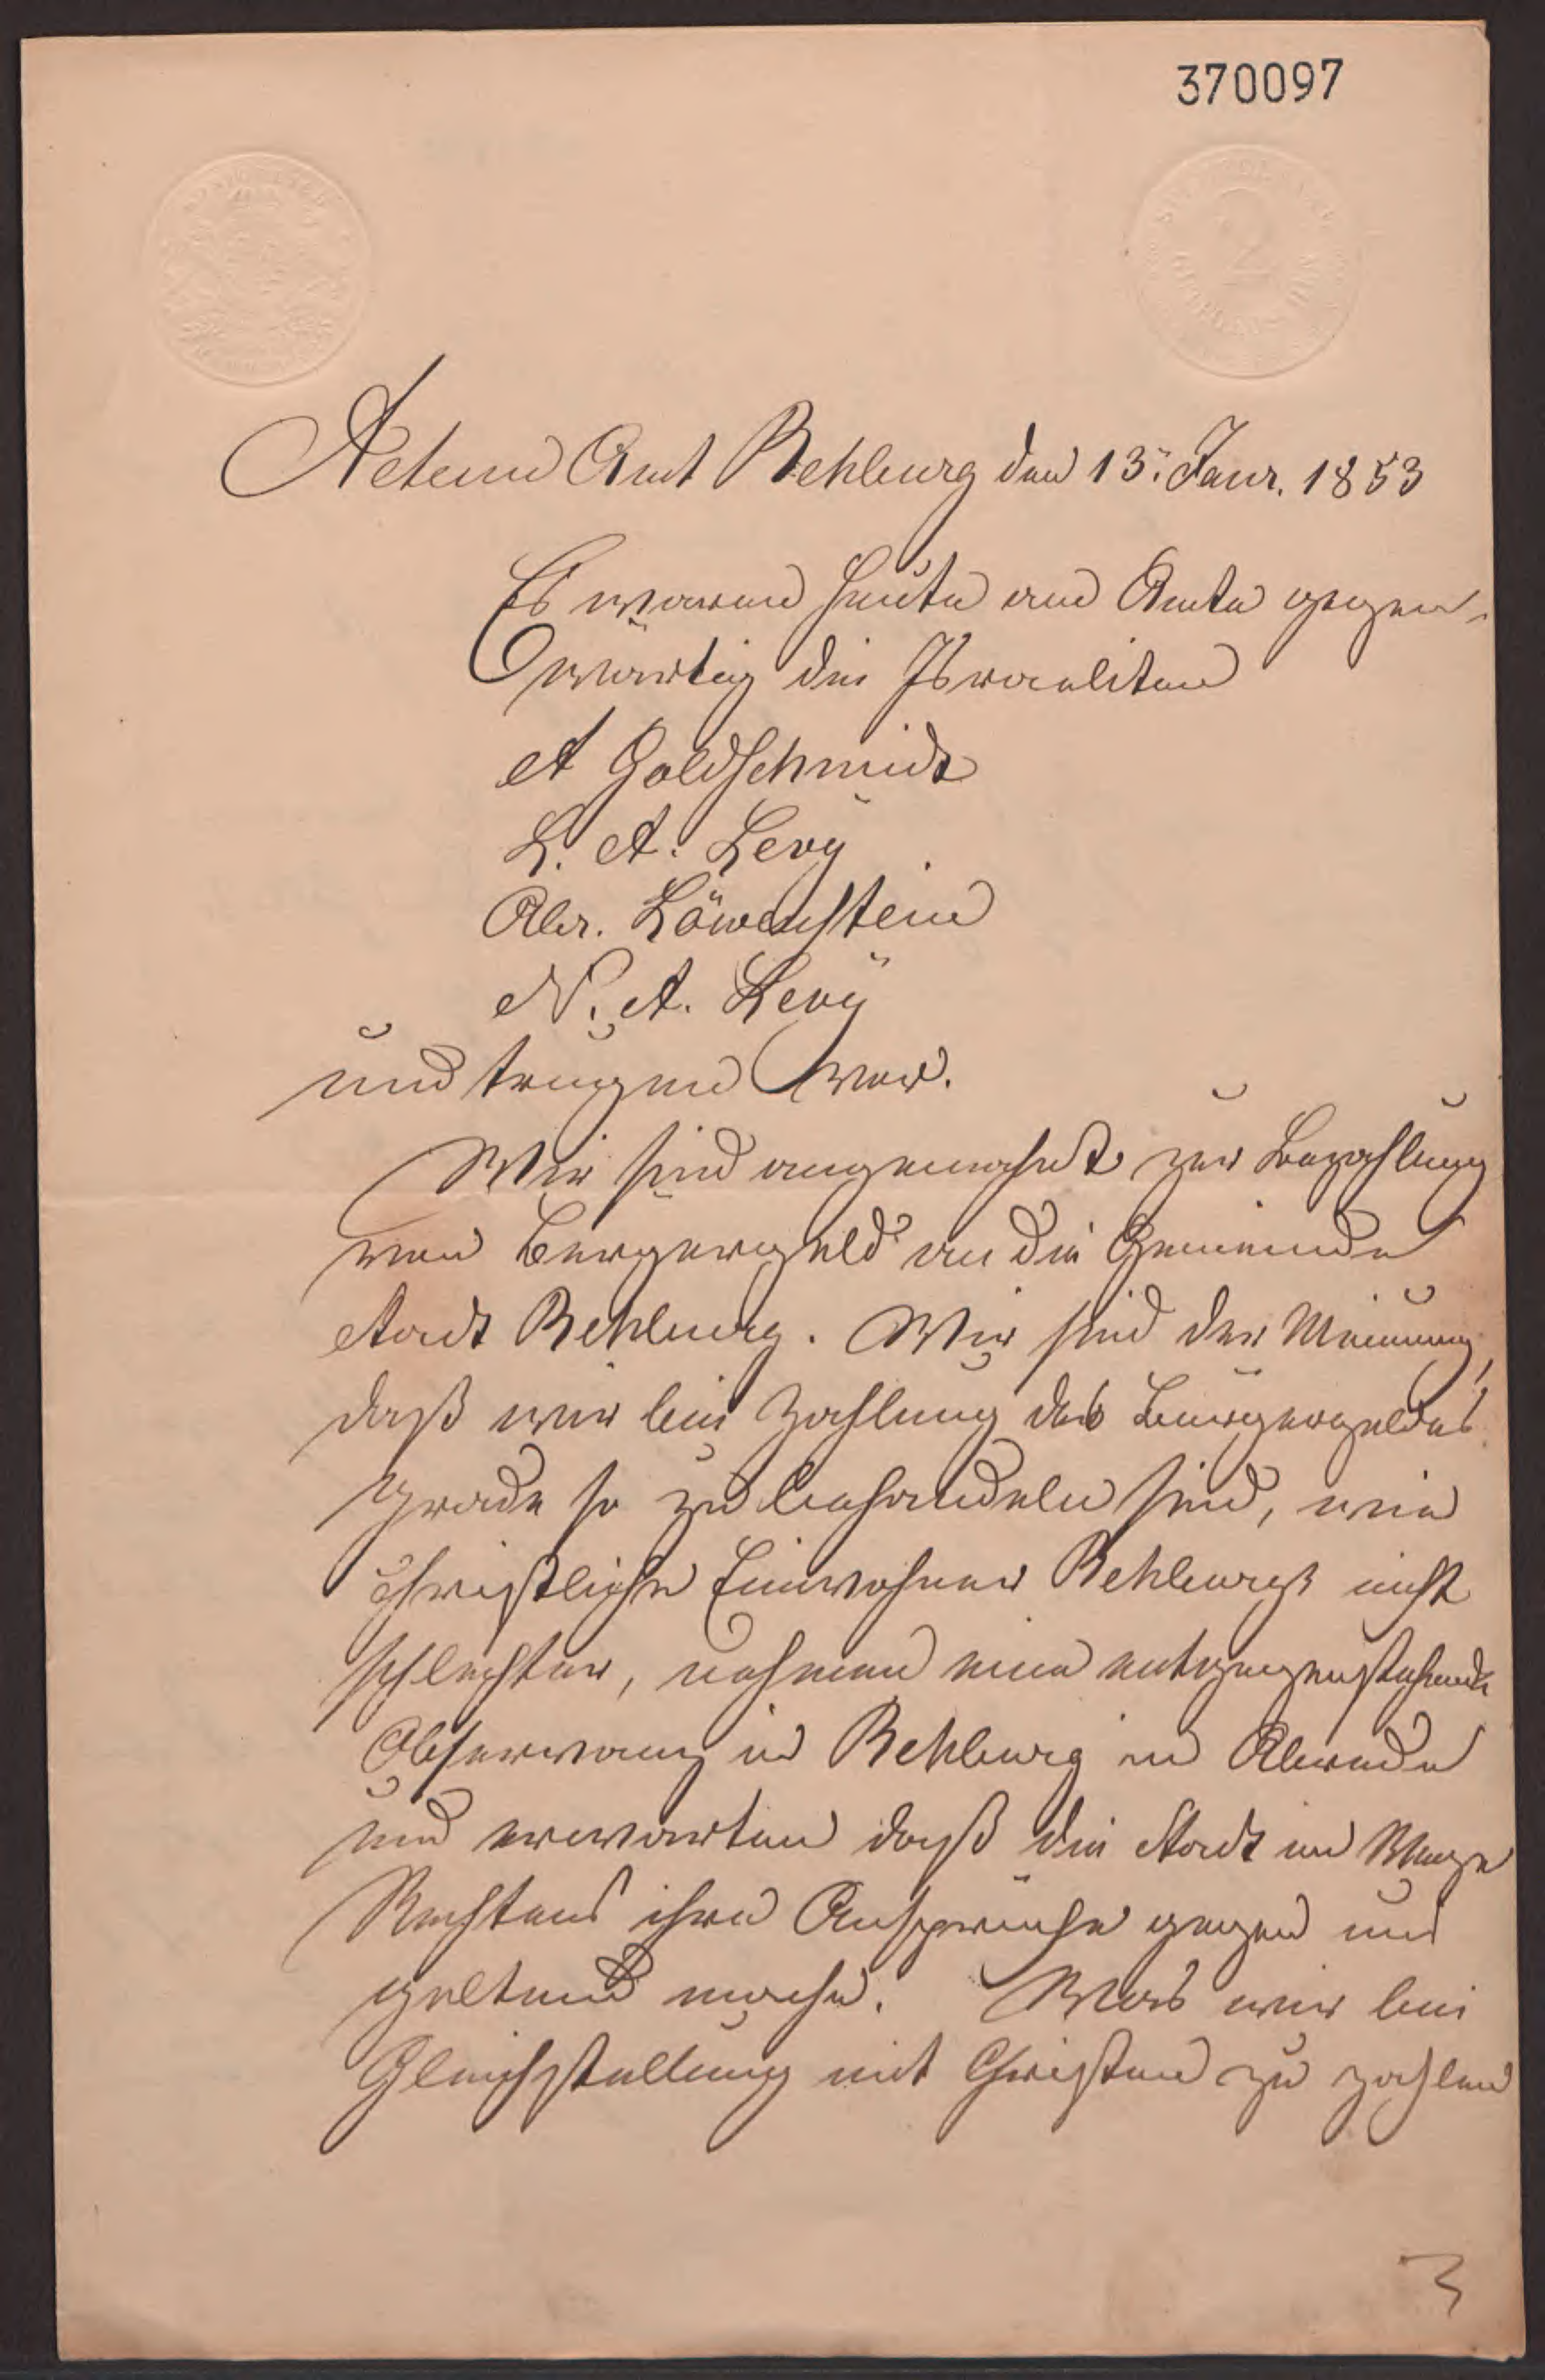 370097
2
Actum Amt Rehburg den 13. Janr. 1853
Es waren heute am Amte gegen-
wärtig die Israeliten
A Goldschmidt
L. A. Levÿ
Abr. Löwenstein
N. A. Levÿ
und trugen vor.
Wir sind angemahnt zur Bezahlung
von Bürgergeld an die Gemeinde
Stadt Rehburg. Wir sind der Meinung,
daß wir bei Zahlung des Bürgergeldes
grade so zu behandeln sind, wie
christliche Einwohner Rehburgs nicht
schlechter, nehmen eine entgegenstehende
Observanz in Rehburg in Abrede
und erwarten daß die Stadt im Wege
Rechtens ihre Ansprüche gegen uns
geltend mache. Was wir bei
Gleichstellung mit Christen zu zahlen
3